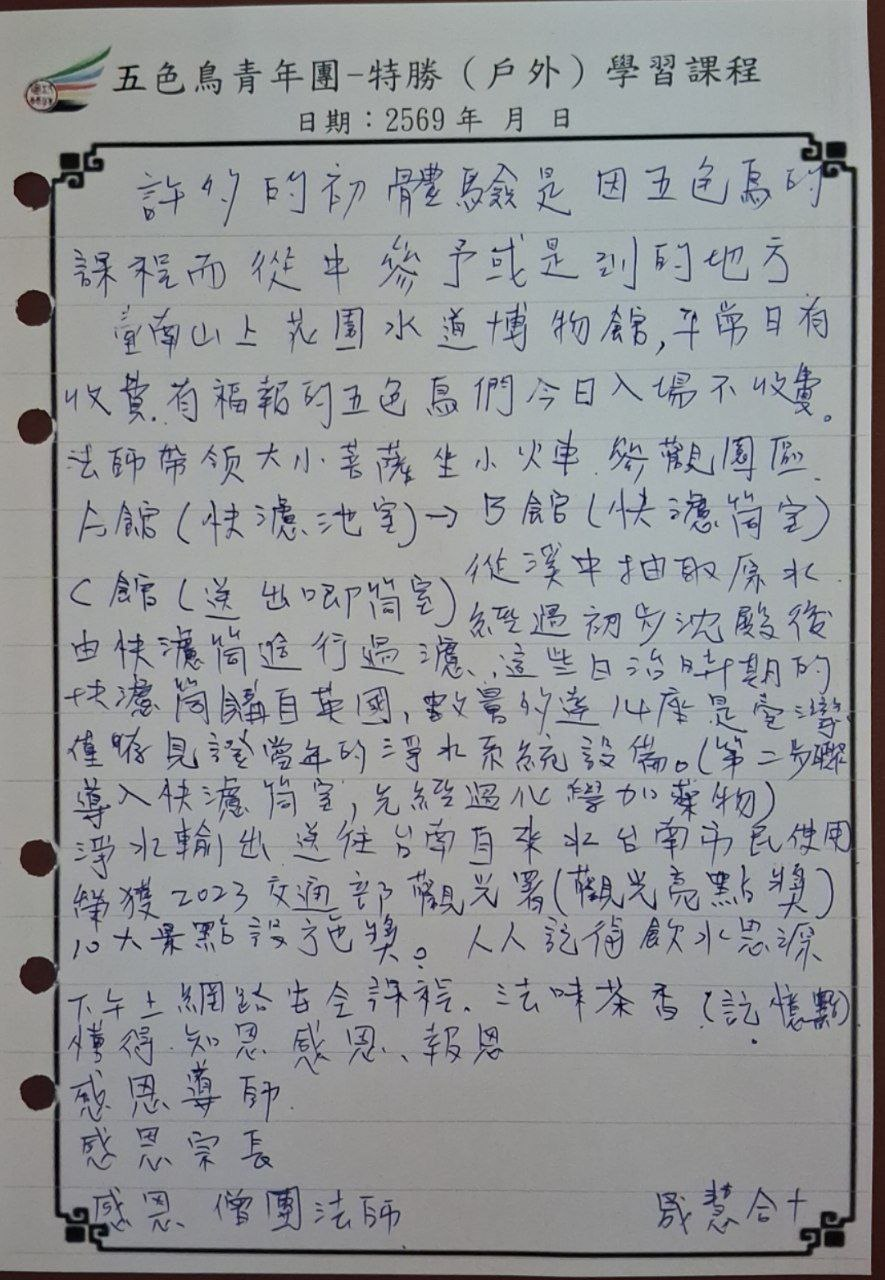 五色鳥青年團-特勝（戶外）學習課程
日期：2569 年 月 日
許多的初體驗是因五色鳥的
課程而從中參予或是到的地方
臺南山上花園水道博物館,平常日有
收費.有福報的五色鳥們今日入場不收費。
法師帶领大小菩薩坐小火車.參觀園區.
A館(快濾池室)→B館(快濾筒室)
C館(送出唧筒室)
從溪中抽取原水.
經過初步沈殿後
由快濾筒進行過濾.,這些日治時期的
快濾筒購自英國,數量約達14座是臺灣
僅存見證當年的淨水系統設備。(第二步驟
導入快濾筒室,先經過化學加藥物)
淨水輸出.送往台南自來水台南市民使用
榮獲2023交通部觀光署(觀光亮點獎)
10大景點設施獎。人人記得飲水思源
下午上網路安全課程.法味茶香.(記憶點)
懂得.知恩.感恩.、報恩
感恩導師.
感恩宗長
感恩.僧團法師
晟慧合十